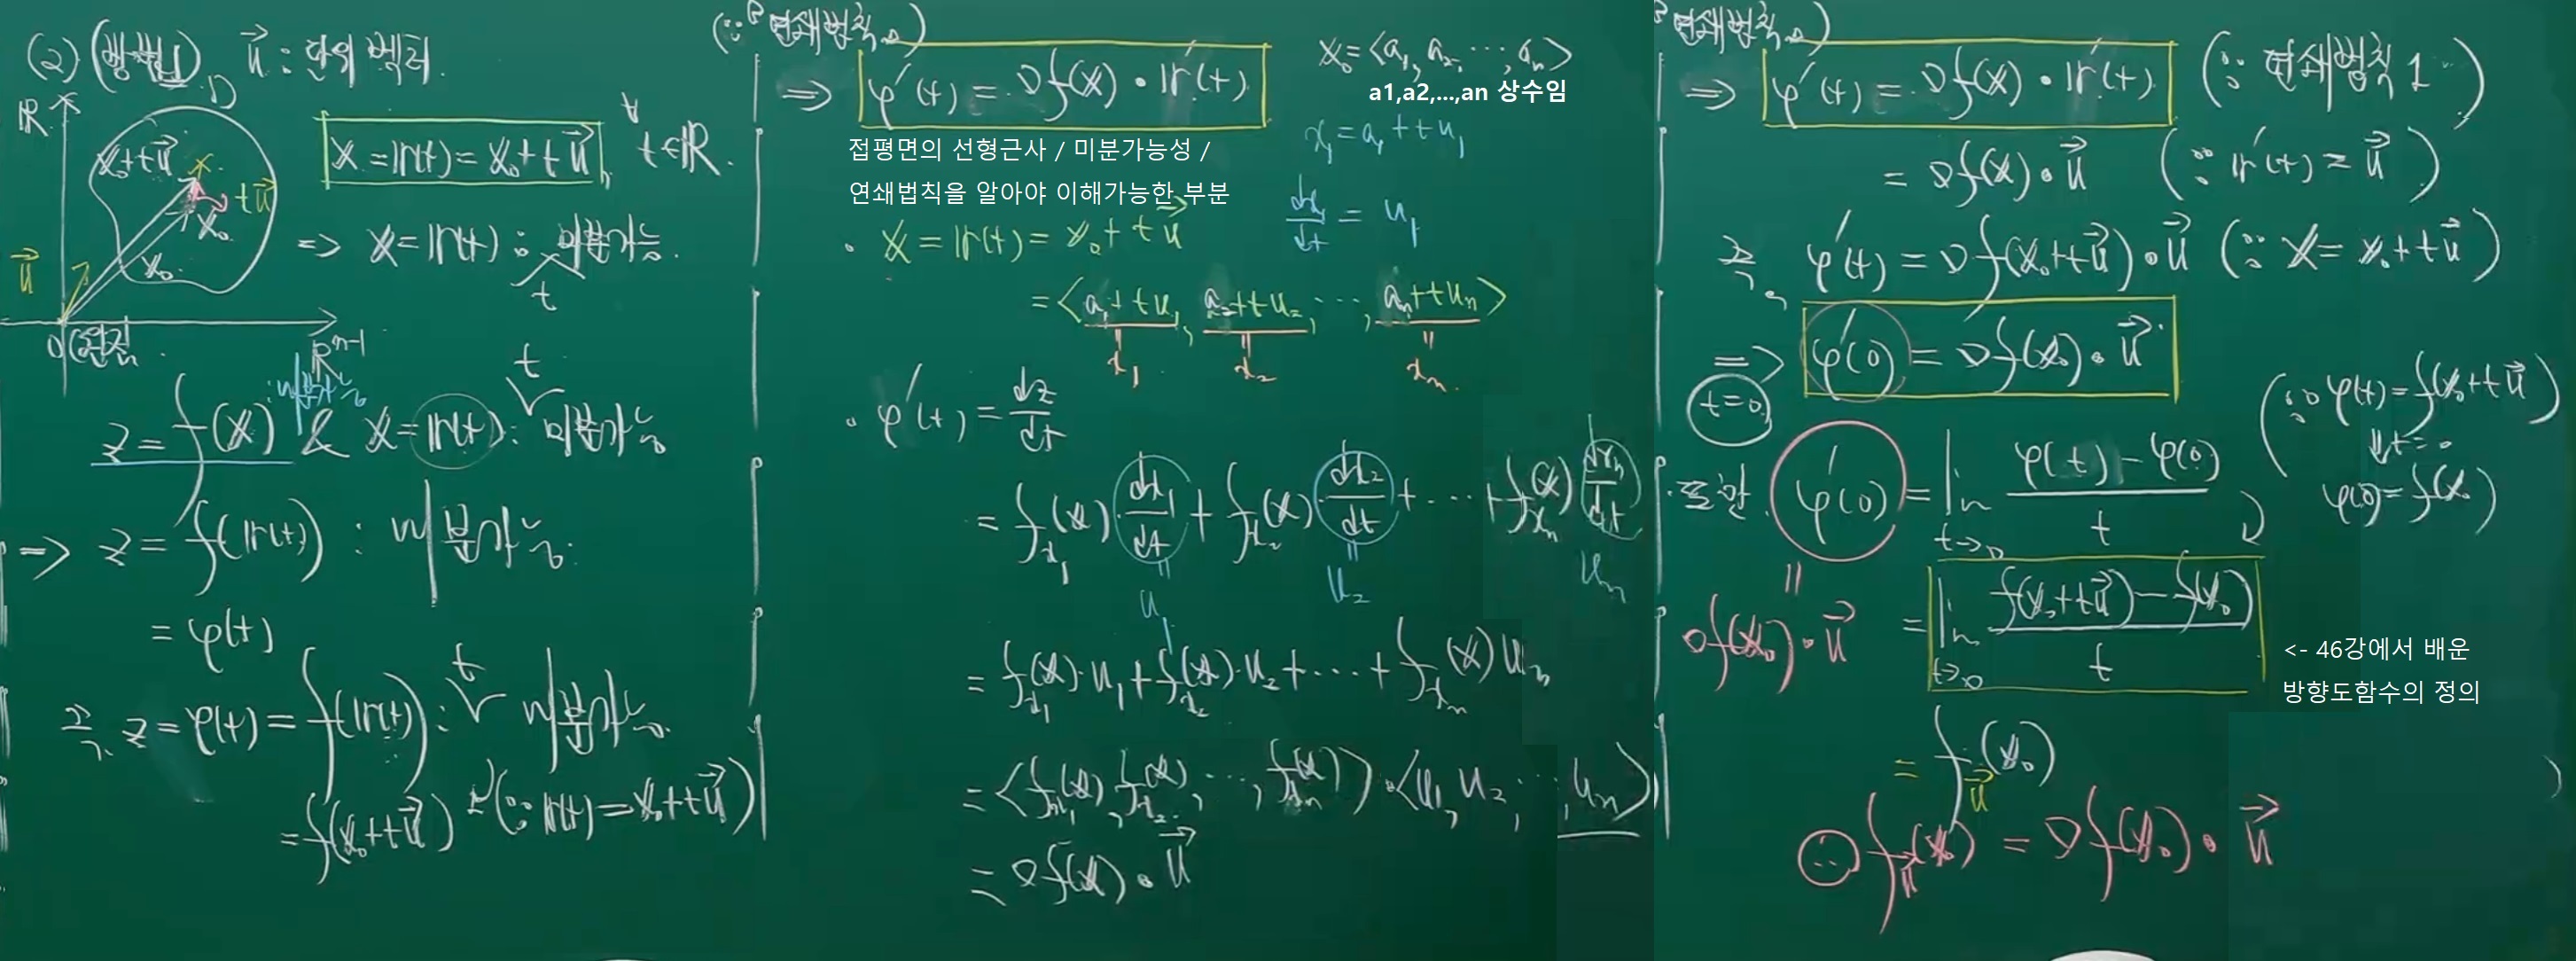 (2) (방법1) u⃗ : 단위 벡터.
ℝ D
x₀+tu⃗ x tu⃗
x₀
x₀
u⃗
0(원점) ℝⁿ⁻¹
x = r(t) = x₀ + tu⃗, ∀t∈ℝ.
⇒ x = r(t) : t 미분가능.
z = f(x) : 미분가능 & x = r(t) : t 미분가능
⇒ z = f(r(t)) : 미분가능.
= φ(t)
즉, z = φ(t) = f(r(t)) : t 미분가능.
= f(x₀+tu⃗) (∵ r(t) = x₀+tu⃗)
(∵ 연쇄법칙)
⇒ φ′(t) = ∇f(x)·r′(t)
x₀ = <a₁, a₂, ⋯, aₙ>
a1,a2,...,an 상수임
x₁ = a₁ + tu₁
dx₁/dt = u₁
접평면의 선형근사 / 미분가능성 /
연쇄법칙을 알아야 이해가능한 부분
· x = r(t) = x₀ + tu⃗
= <a₁+tu₁, a₂+tu₂, ⋯, aₙ+tuₙ>
= x₁ = x₂ = xₙ
· φ′(t) = dz/dt
= f_x₁(x)·dx₁/dt + f_x₂(x)·dx₂/dt + ⋯ + f_xₙ(x) dxₙ/dt
= u₁ = u₂ uₙ
= f_x₁(x)·u₁ + f_x₂(x)·u₂ + ⋯ + f_xₙ(x) uₙ
= <f_x₁(x), f_x₂(x), ⋯, f_xₙ(x)>·<u₁, u₂, ⋯, uₙ>
= ∇f(x)·u⃗
연쇄법칙)
⇒ φ′(t) = ∇f(x)·r′(t) (∵ 연쇄법칙 1)
= ∇f(x)·u⃗ (∵ r′(t) = u⃗)
즉, φ′(t) = ∇f(x₀+tu⃗)·u⃗ (∵ x = x₀+tu⃗)
⇒ φ′(0) = ∇f(x₀)·u⃗
t=0
(∵ φ(t) = f(x₀+tu⃗)
⇓ t=0
φ(0) = f(x₀))
또한, φ′(0) = lim t→0 (φ(t)-φ(0))/t
=
∇f(x₀)·u⃗ = lim t→0 (f(x₀+tu⃗)-f(x₀))/t
<- 46강에서 배운
방향도함수의 정의
= f_u⃗(x₀)
∴ f_u⃗(x₀) = ∇f(x₀)·u⃗